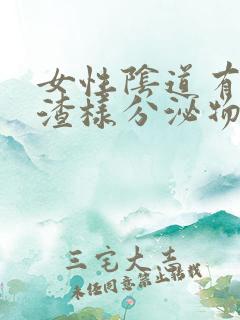 女性陰道有
渣樣分泌物
三宅大志
未经同意禁止搭载